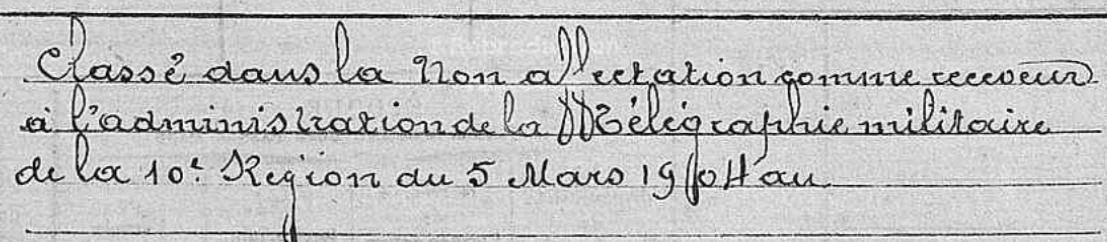 Classé dans la Non affectation comme receveur
à l'administration de la Télégraphie militaire
de la 10e Région du 5 Mars 1904 au